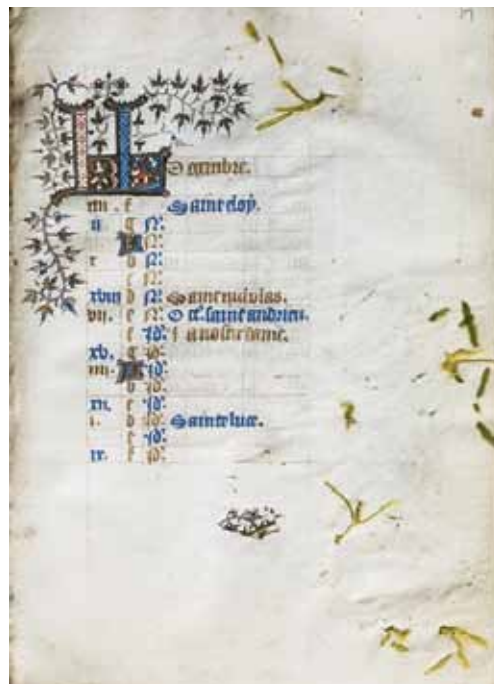 KL Decembre.
iiii. f Saint eloy.
ii g N:
A N:
x b N:
c N:
xviii d N: Saint nicolas.
vii. e N: Oct. saint andrieu.
f Id: La nostre dame.
xv. g Id:
iiii. A Id:
b Id:
xii. c Id:
i. d Id: Sainte luce.
e Id:
ix. f Id: